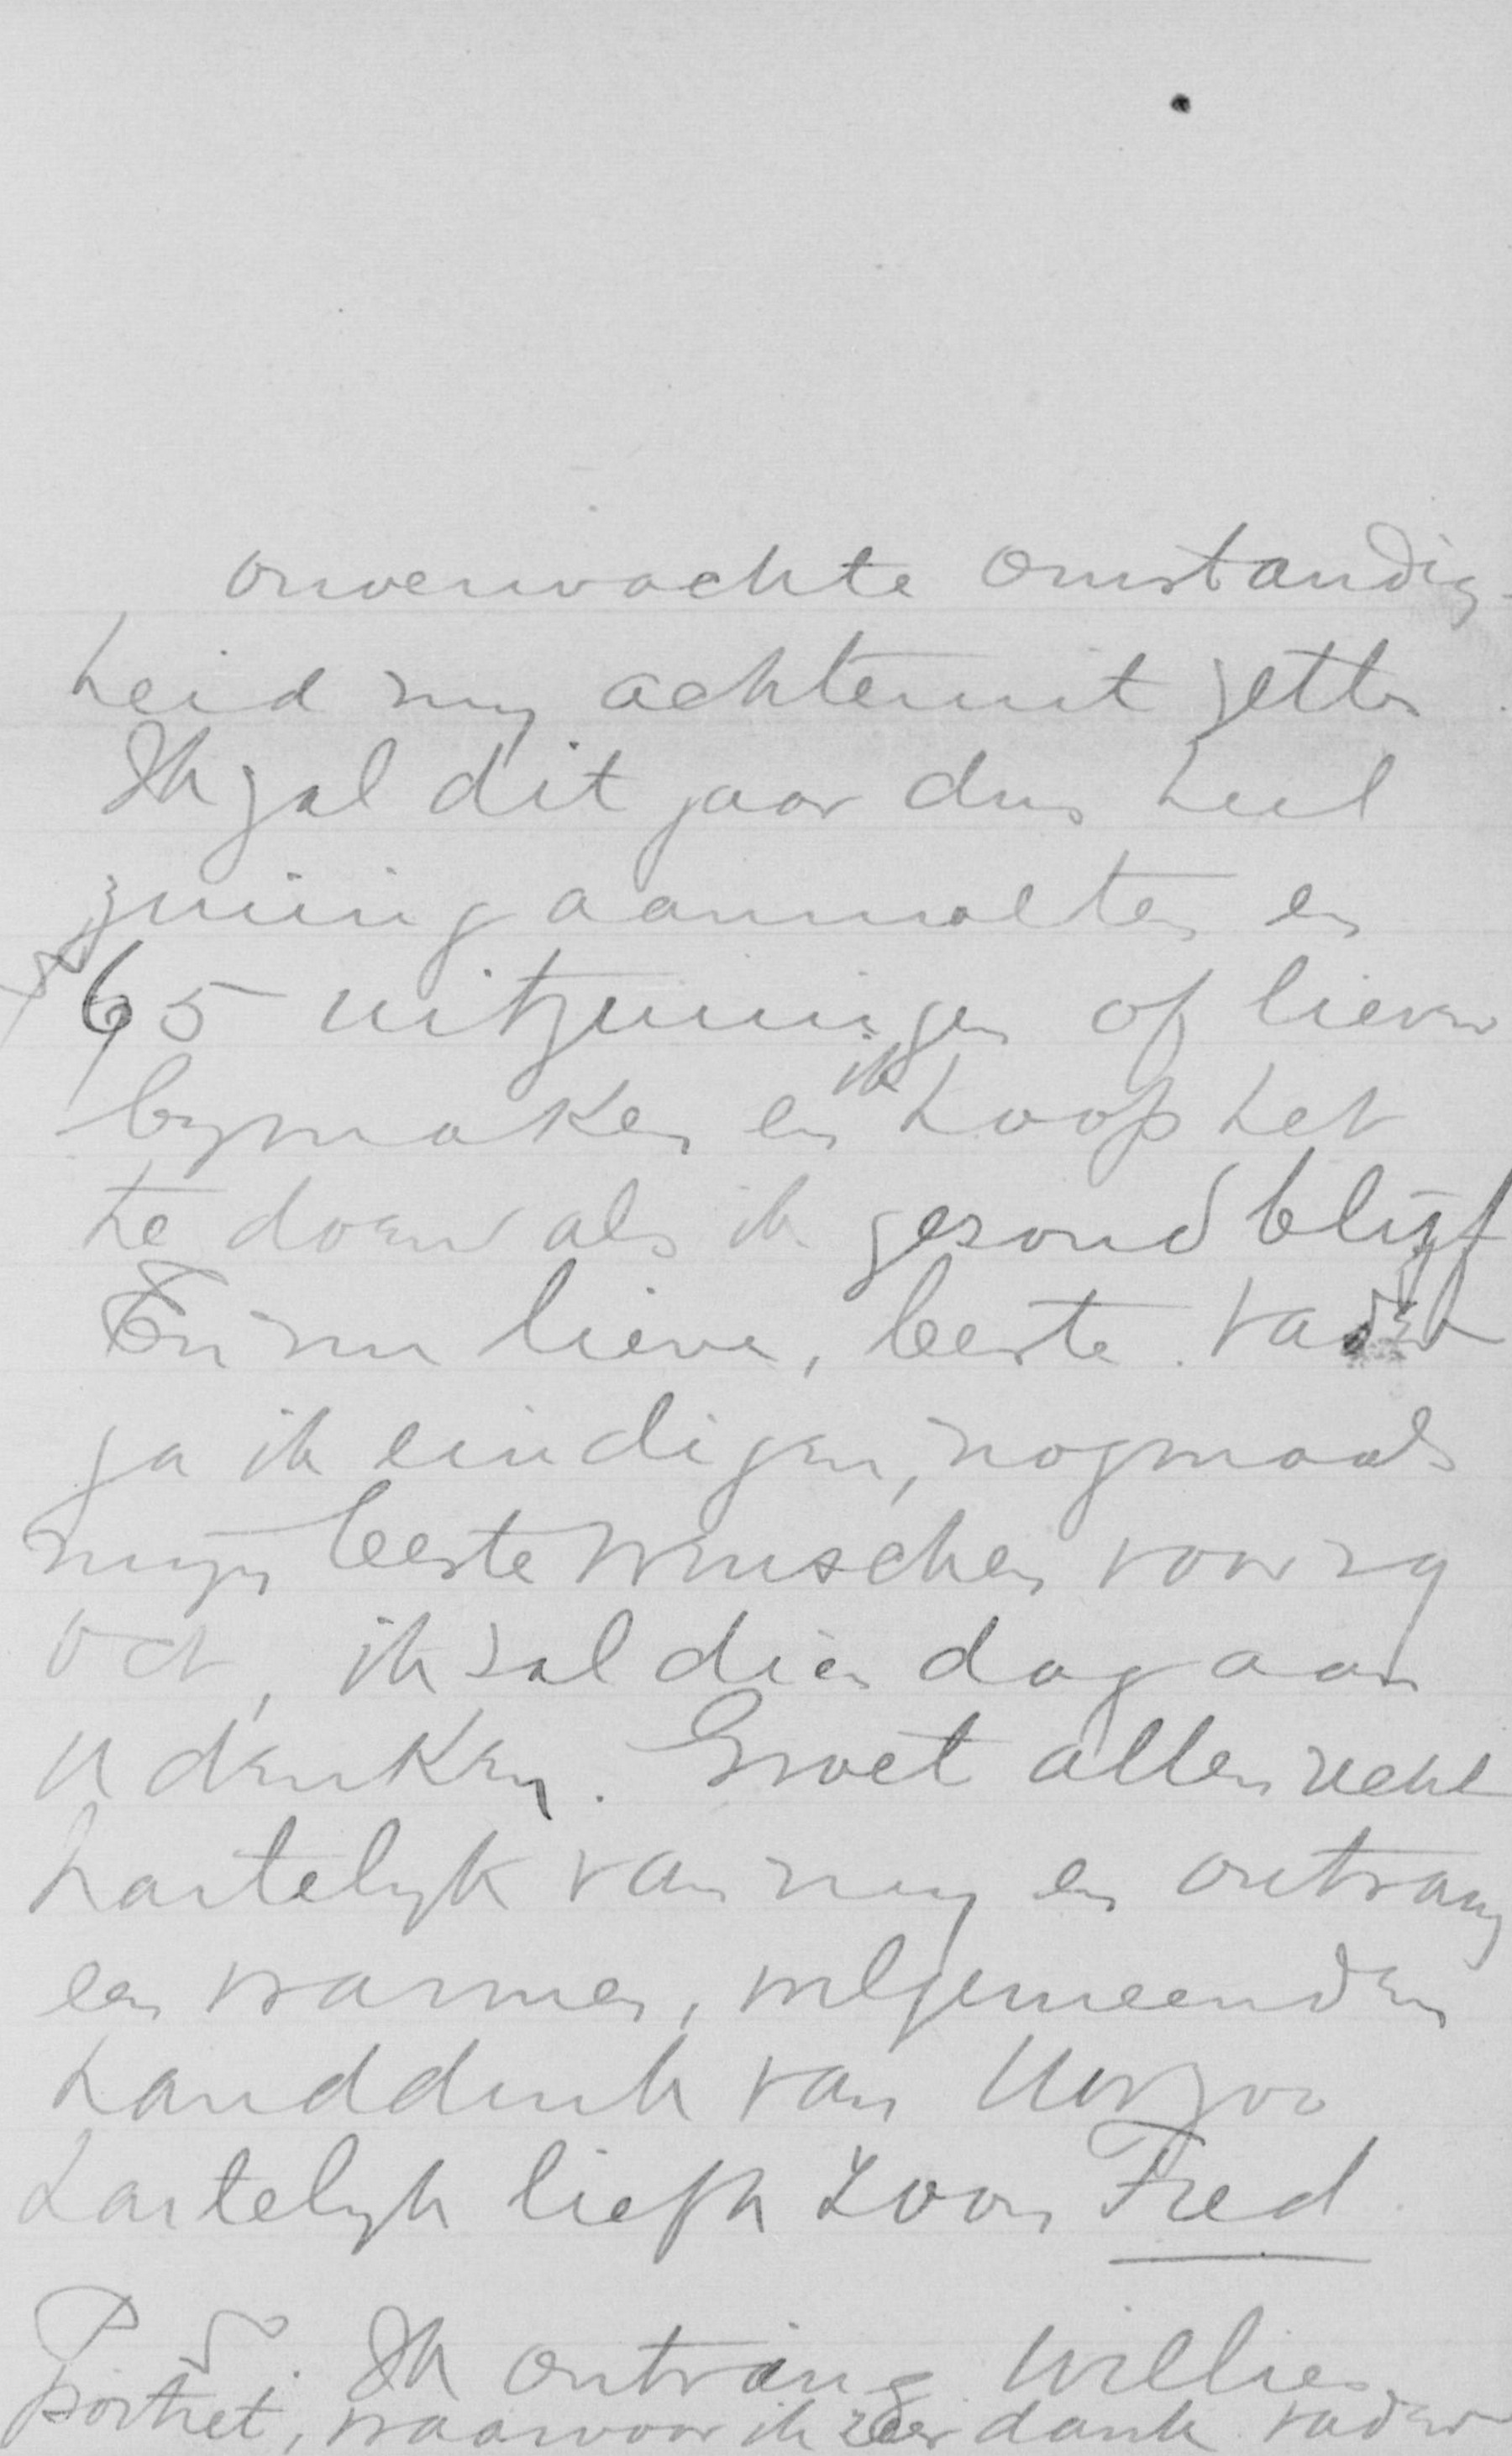 onverwachte omstandig-
heid my achteruit zetten
Ik zal dit jaar dus heel
zuinig aanmoeten en
65 uitzuinigen of liever
bymaken en ik hoop het
te doen als ik gezond blijf
En nu lieve, beste vader
ga ik eindigen, nogmaals
mijn beste wenschen voor 29
Oct, ik zal dien dag aan
U denken. Groet allen recht
hartelyk van my en ontvang
een warmen, welgemeenden
handdruk van Uw zoo
hartelyk liefh zoon Fred.
PS. Ik ontving Willies
portret, waarvoor ik zeer dank vader